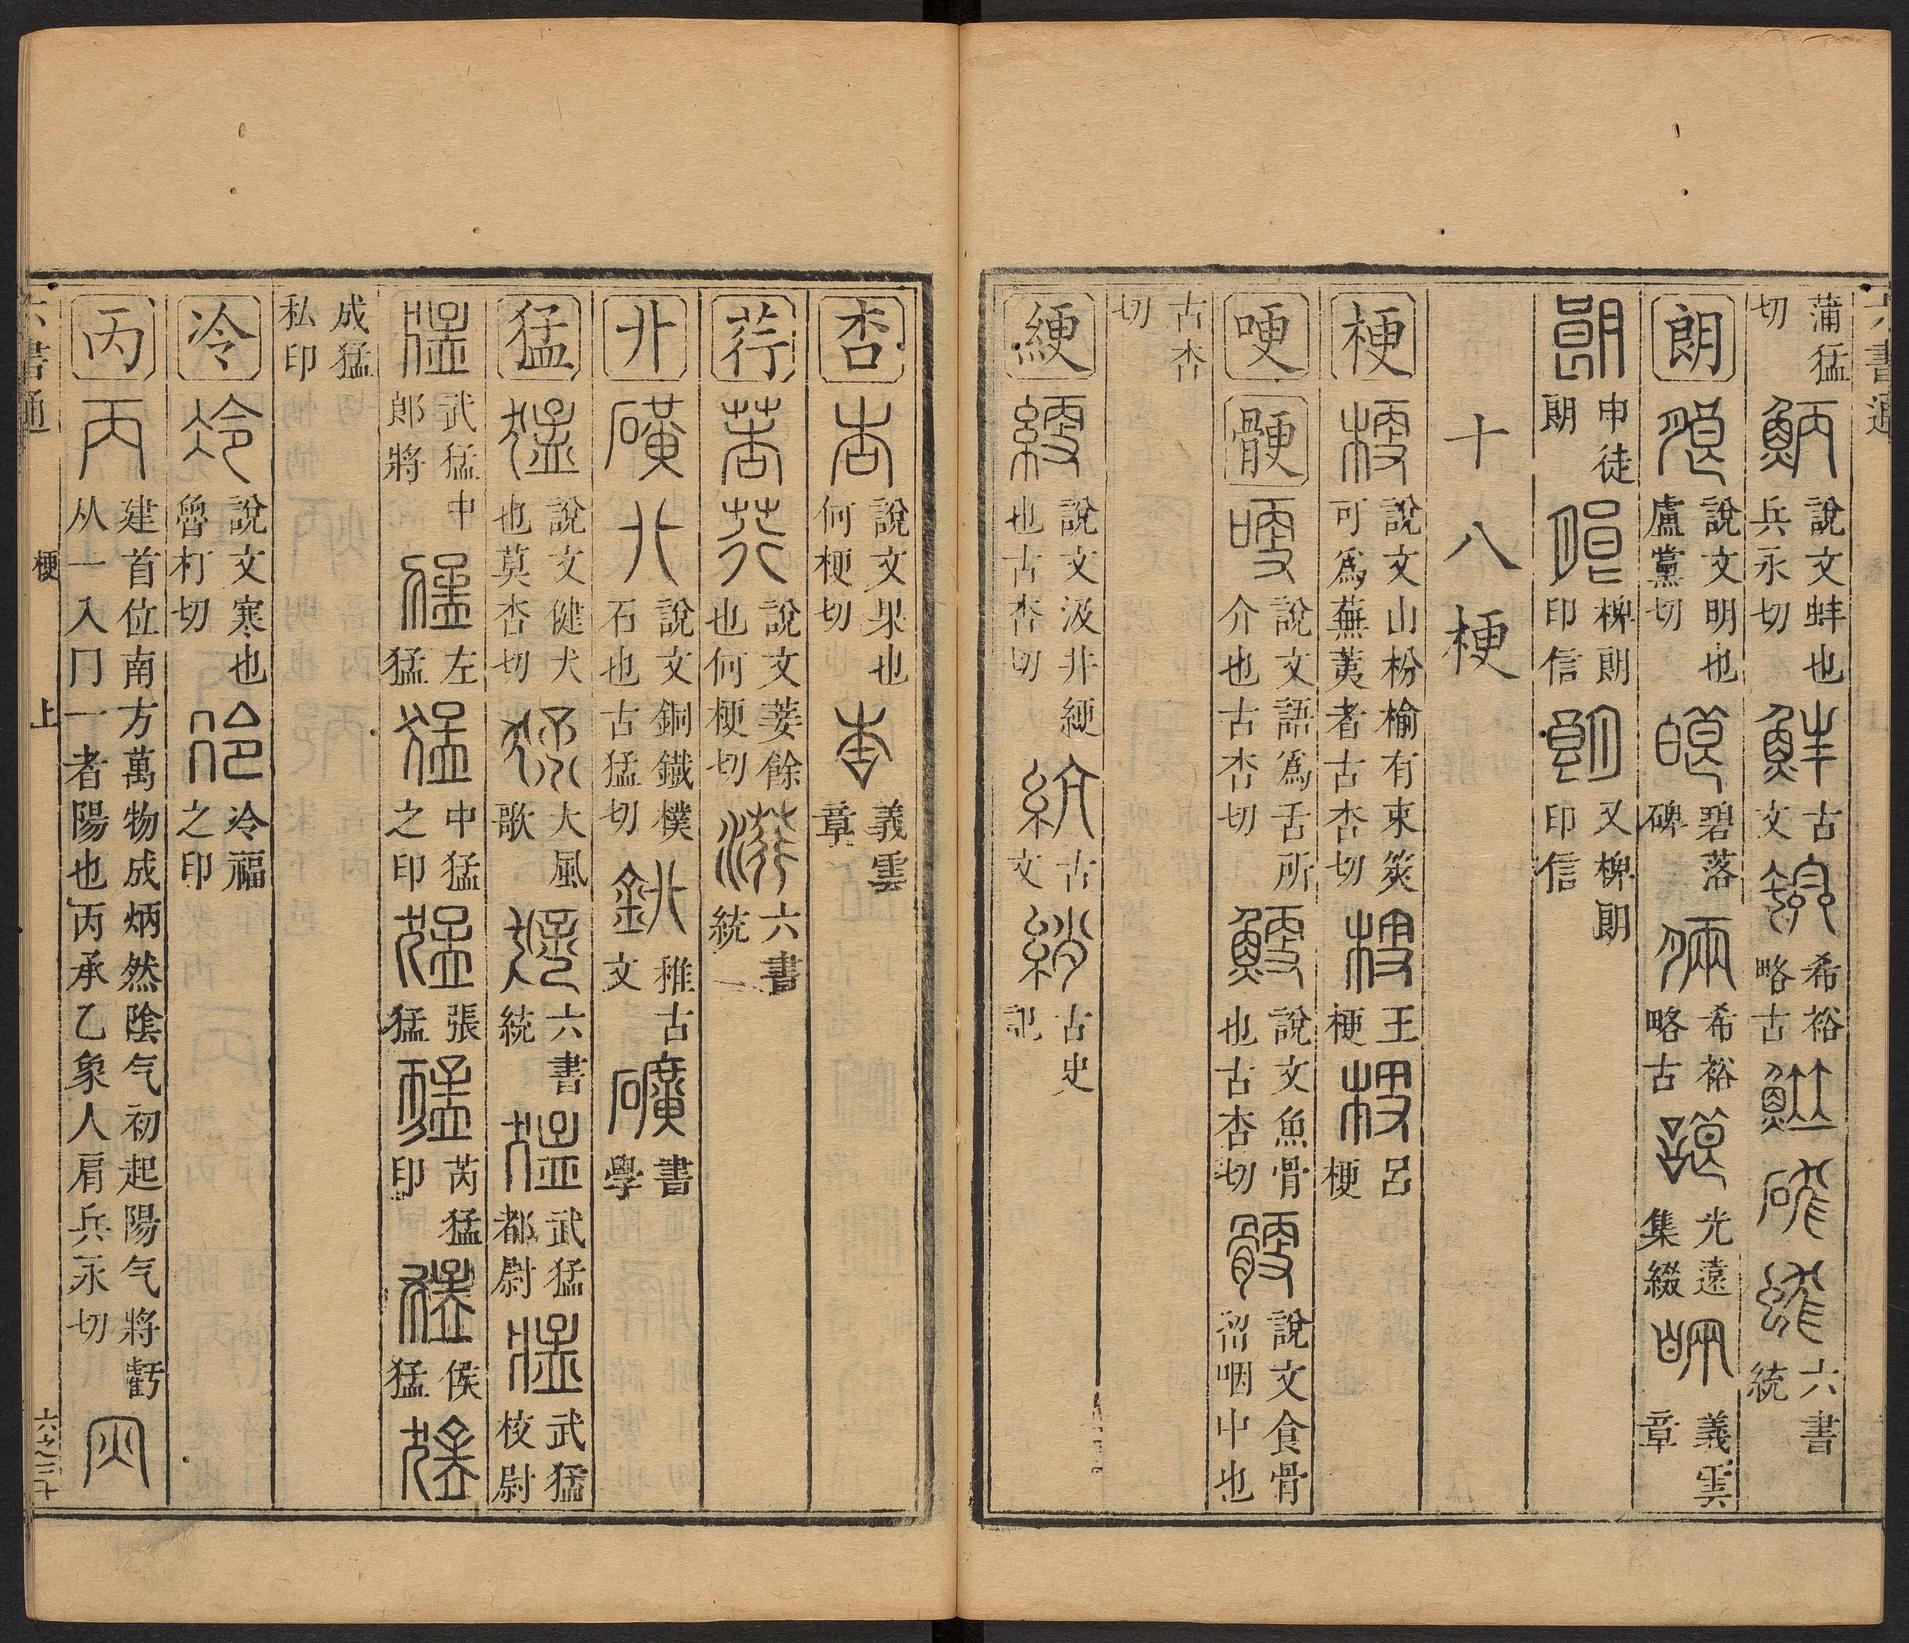 六書通
蒲猛切 說文蚌也兵永切 古文 希裕略古 六書統
朗 說文明也盧黨切 碧落碑 希裕略古 光遠集綴 義雲章
申徒朗 椑朗印信 又椑朗印信
十八梗
梗 說文山枌榆有朿莢可為蕪荑者古杏切 王梗 呂梗
哽 骾 說文語為舌所介也古杏切 說文魚骨也古杏切 說文食骨畱咽中也
古杏切
綆 說文汲井綆也古杏切 古文 古史記
杏 說文果也何梗切 義雲章
荇 說文菨餘也何梗切 六書統
廾 說文銅鐵樸石也古猛切 古文 書學
猛 說文健犬也莫杏切 大風歌 六書統 武猛都尉 武猛校尉
武猛中郎將 左猛 中猛之印 張猛 芮猛印 侯猛
成猛私印
冷 說文寒也魯打切 冷福之印
丙 建首位南方萬物成炳然陰气初起陽气將虧从一入冂一者陽也丙承乙象人肩兵永切
六書通 梗 上 六之三十